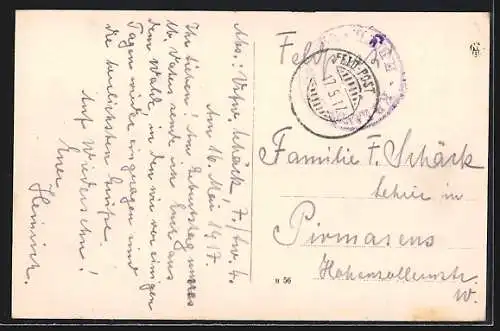 Abs.: Vztw. Schäck, 7/Ldw. 4.
Am 16. Mai 1917.
Ihr Lieben! Am Geburtstag unseres
lb. Vaters sende ich Euch aus
dem Walde in den wir vor einigen
Tagen wieder eingezogen sind
die herzlichsten Grüße.
Auf Wiedersehn!
Euer
Heinrich.
Feldpost
FELD-POST
17.5.17
Familie F. Schäck
Lehrer in
Pirmasens
Hohenzollernstr.
W.
n 56